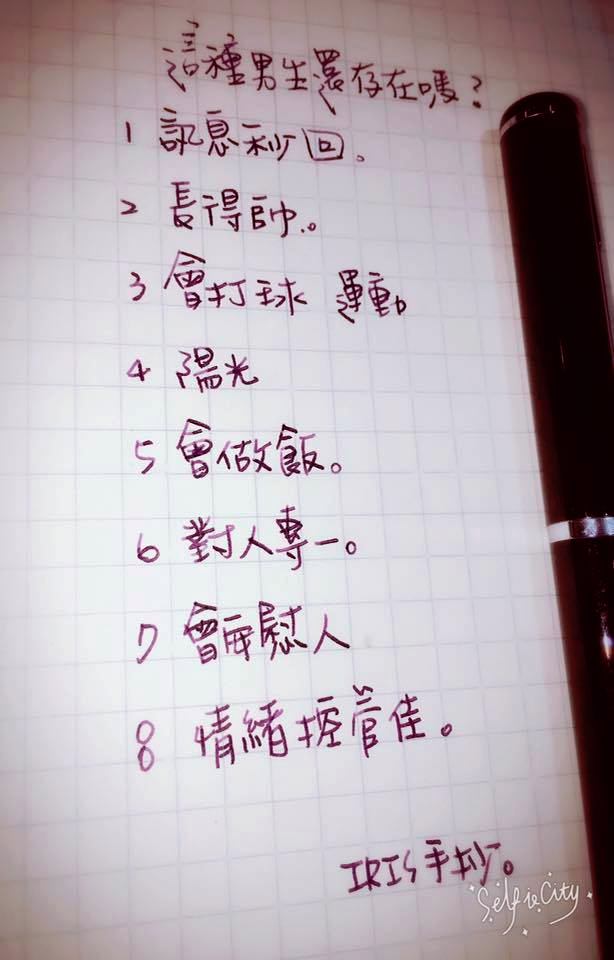 這種男生還存在嗎？
1 訊息秒回。
2 長得帥。
3 會打球 運動
4 陽光
5 會做飯。
6 對人專一。
7 會安慰人
8 情緒控管佳。
IRIS手抄。
SelfieCity